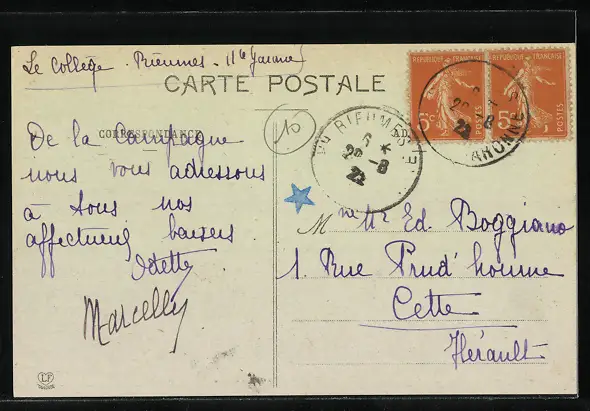 Le Collège. Rieumes. Hte Garonne
CARTE POSTALE
CORRESPONDANCE
De la Campagne
nous vous adressons
à tous nos
affectueux baisers
Odette
Marcelly
10
RIEUMES
6 *
28 - 8
22
REPUBLIQUE FRANÇAISE
5c
POSTES
REPUBLIQUE FRANÇAISE
5c
POSTES
GARONNE
22
Mme Ed. Boggiano
1. Rue Prud'homme
Cette
Hérault
LF